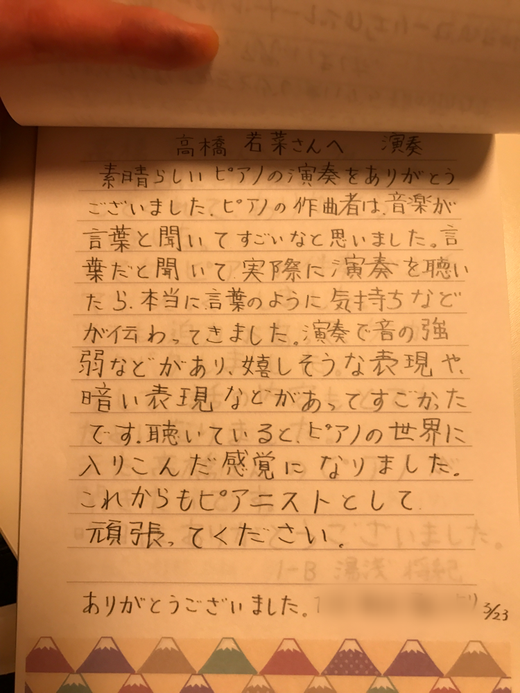 高橋 若菜さんへ 演奏
素晴らしいピアノの演奏をありがとう
ございました。ピアノの作曲者は、音楽が
言葉と聞いてすごいなと思いました。言
葉だと聞いて実際に演奏を聴い
たら、本当に言葉のように気持ちなど
が伝わってきました。演奏で音の強
弱などがあり、嬉しそうな表現や、
暗い表現などがあってすごかった
です。聴いていると、ピアノの世界に
入りこんだ感覚になりました。
これからもピアニストとして
頑張ってください。
ありがとうございました。
3/23